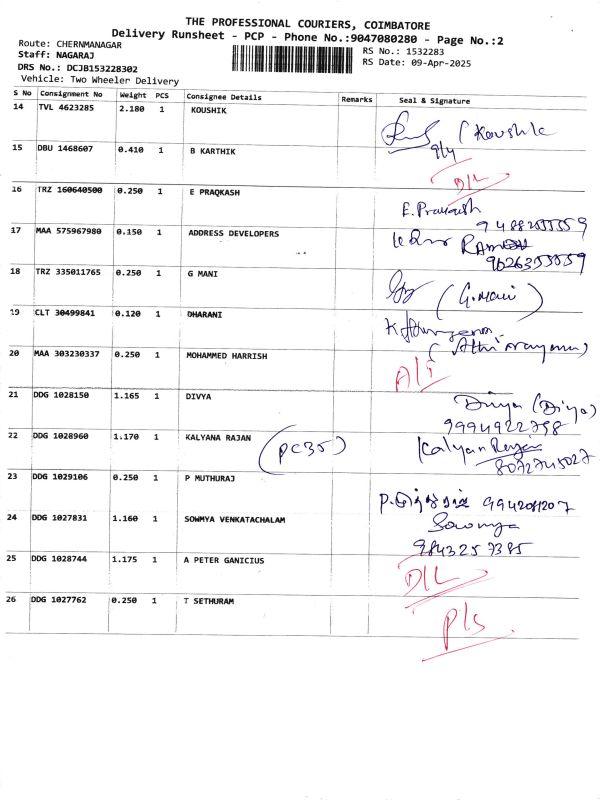 THE PROFESSIONAL COURIERS, COIMBATORE
Delivery Runsheet - PCP - Phone No.:9047080280 - Page No.:2
Route: CHERNMANAGAR
Staff: NAGARAJ
DRS No.: DCJB153228302
Vehicle: Two Wheeler Delivery
RS No.: 1532283
RS Date: 09-Apr-2025
S No Consignment No Weight PCS Consignee Details Remarks Seal & Signature
14 TVL 4623285 2.180 1 KOUSHIK
(Koushik
9/4
15 DBU 1468607 0.410 1 B KARTHIK
D/L
16 TRZ 160640500 0.250 1 E PRAQKASH
E. Prakash
9488255559
17 MAA 575967980 0.150 1 ADDRESS DEVELOPERS
9626355559
18 TRZ 335011765 0.250 1 G MANI
(G.Mani)
19 CLT 30499841 0.120 1 DHARANI
20 MAA 303230337 0.250 1 MOHAMMED HARRISH
21 DDG 1028150 1.165 1 DIVYA
Divya (Divya)
9994922798
22 DDG 1028960 1.170 1 KALYANA RAJAN (PC35)
Kalyan Rajan
8072745027
23 DDG 1029106 0.250 1 P MUTHURAJ
9942081207
24 DDG 1027831 1.160 1 SOWMYA VENKATACHALAM
Sowmya
9843257385
25 DDG 1028744 1.175 1 A PETER GANICIUS
D/L
26 DDG 1027762 0.250 1 T SETHURAM
P/S